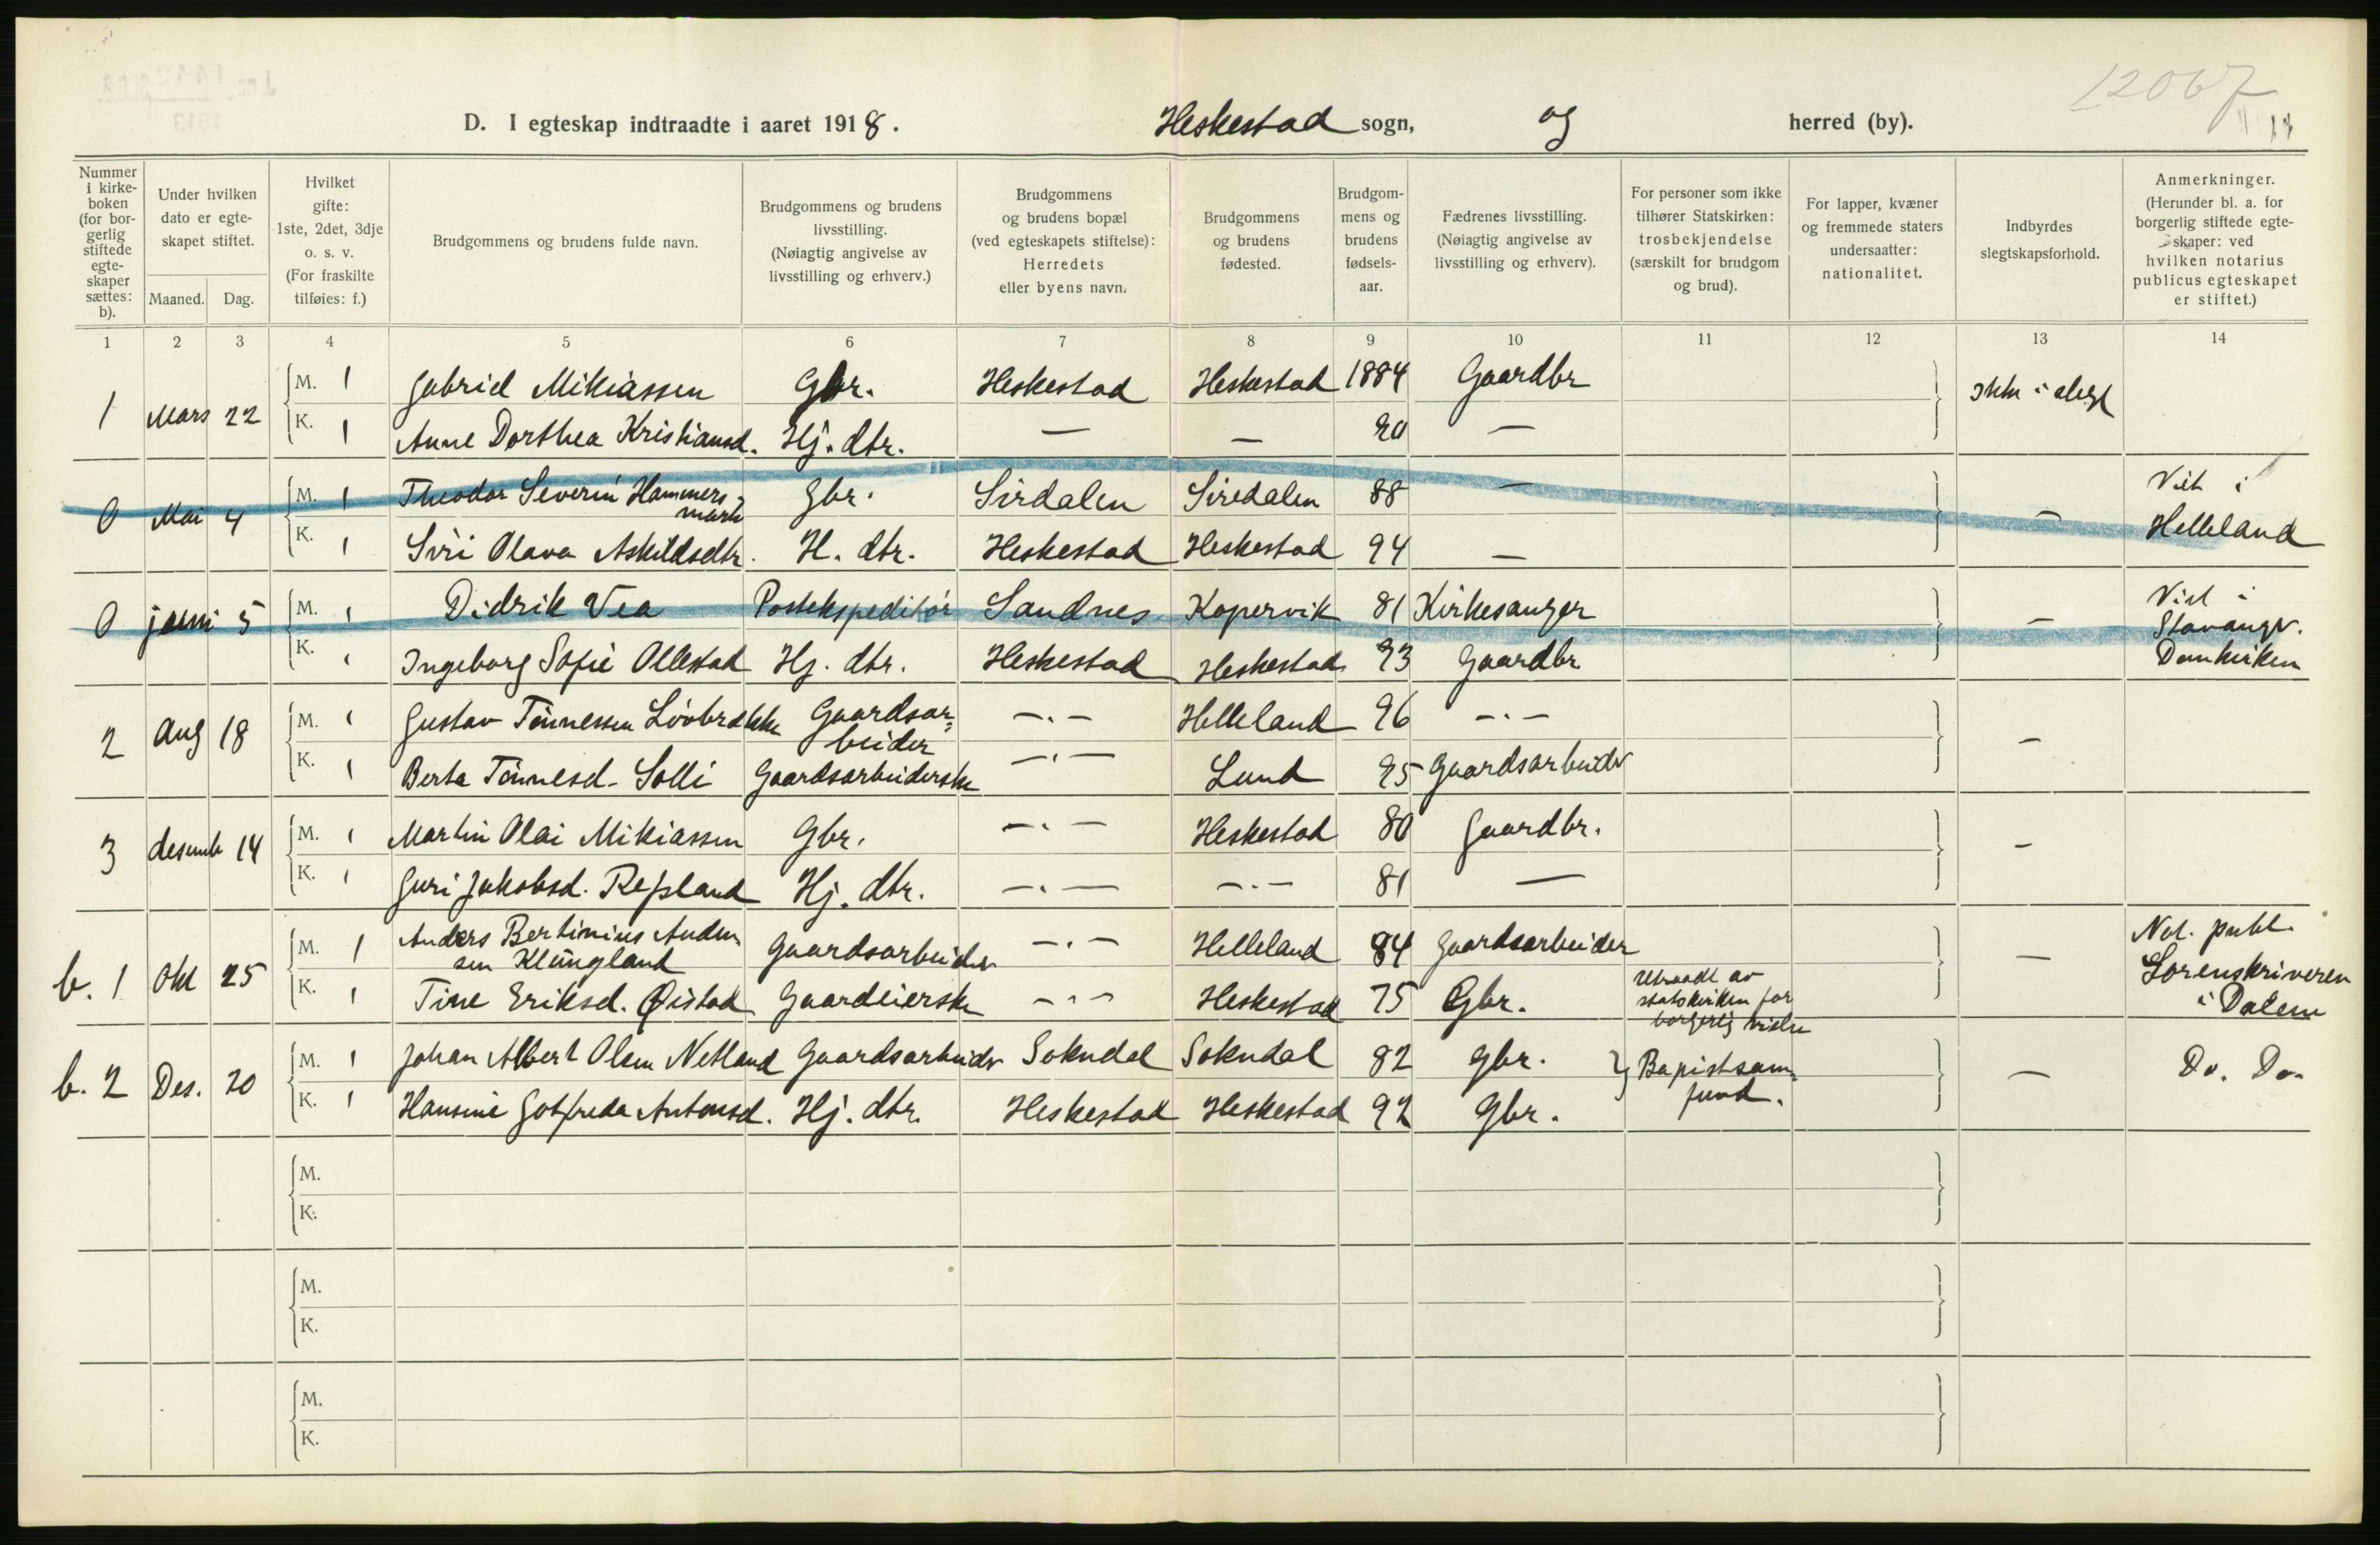 12067
D. I egteskap indtraadte i aaret 1918. Heskestad sogn, og herred (by).
Nummer i kirke-boken (for bor-gerlig stiftede egte-skaper sættes: b).
Under hvilken dato er egte-skapet stiftet.
Maaned. Dag.
Hvilket gifte: 1ste, 2det, 3dje o. s. v. (For fraskilte tilføies: f.)
Brudgommens og brudens fulde navn.
Brudgommens og brudens livsstilling. (Nøiagtig angivelse av livsstilling og erhverv.)
Brudgommens og brudens bopæl (ved egteskapets stiftelse): Herredets eller byens navn.
Brudgommens og brudens fødested.
Brudgom-mens og brudens fødsels-aar.
Fædrenes livsstilling. (Nøiagtig angivelse av livsstilling og erhverv).
For personer som ikke tilhører Statskirken: trosbekjendelse (særskilt for brudgom og brud).
For lapper, kvæner og fremmede staters undersaatter: nationalitet.
Indbyrdes slegtskapsforhold.
Anmerkninger. (Herunder bl. a. for borgerlig stiftede egte-skaper: ved hvilken notarius publicus egteskapet er stiftet.)
1 2 3 4 5 6 7 8 9 10 11 12 13 14
1 Mars 22 M. 1 Gabriel Mikiassen Gbr. Heskestad Heskestad 1884 Gaardbr Ikke i slegt
K. 1 Anne Dorthea Kristiansd. Hj. dtr. — — 90 —
0 Mai 4 M. 1 Theodor Severin Hammers-mark Gbr. Sirdalen Siredalen 88 — — Viet i
K. 1 Siri Olava Askildsdtr. H. dtr. Heskestad Heskestad 94 — Helleland
0 juni 5 M. 1 Didrik Vea Postekspeditør Sandnes Kopervik 81 Kirkesanger — Viet i Stavanger.
K. 1 Ingeborg Sofie Ollestad Hj. dtr. Heskestad Heskestad 93 Gaardbr Domkirken
2 Aug 18 M. 1 Gustav Tønnessen Løvbrække Gaardsar-beider —"— Helleland 96 —"— —
K. 1 Berta Tønnesd. Solli Gaardsarbeiderske —"— Lund 95 Gaardsarbeider
3 desemb 14 M. 1 Martin Olai Mikiassen Gbr. —"— Heskestad 80 Gaardbr. —
K. 1 Guri Jakobsd. Refsland Hj. dtr. —"— —"— 81 —
b. 1 Okt 25 M. 1 Anders Bertinius Ander-sen Klungland Gaardsarbeider —"— Helleland 84 Gaardsarbeider — Not. publ. Sorenskriveren
K. 1 Tine Eriksd. Øistad Gaardeierske —"— Heskestad 75 Gbr. Utraadt av statskirken for borgerlig vielse i Dalene
b. 2 Des. 20 M. 1 Johan Albert Olsen Netland Gaardsarbeider Sokndal Sokndal 82 Gbr. } Bapistsam-fund. — Do. Do.
K. 1 Hansine Gotfreda Antonsd. Hj. dtr. Heskestad Heskestad 92 Gbr.
M.
K.
M.
K.
M.
K.